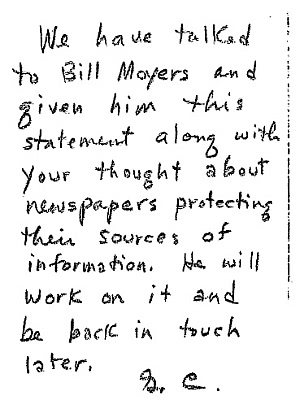 We have talked
to Bill Moyers and
given him this
statement along with
your thought about
newspapers protecting
their sources of
information. He will
work on it and
be back in touch
later.
G. C.